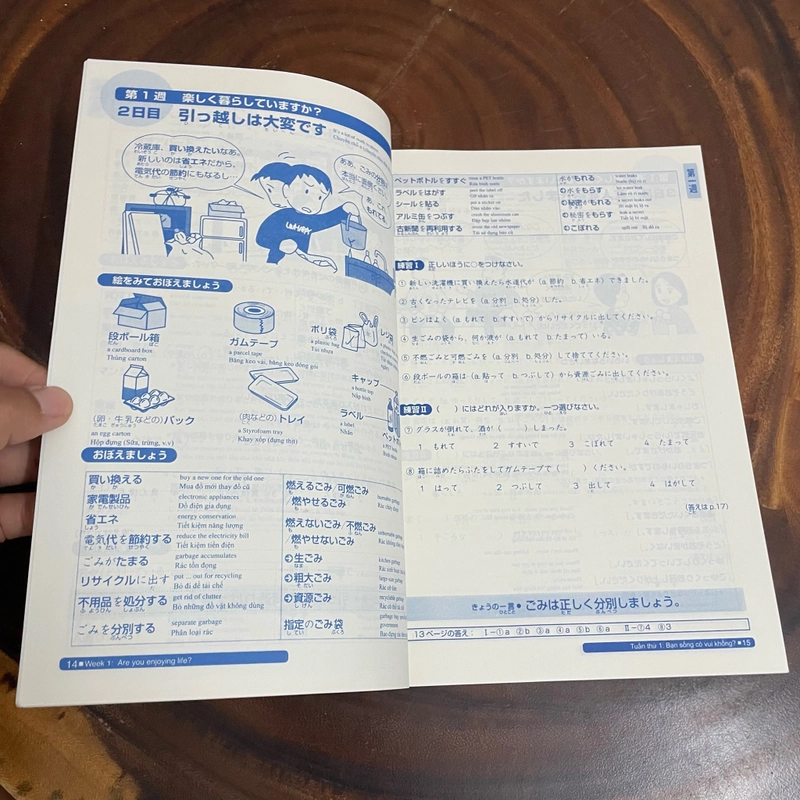 第1週 楽しく暮らしていますか？
2日目 引っ越しは大変です
冷蔵庫、買い換えたいなあ。
新しいのは省エネだから、
電気代の節約にもなるし…
ああ、ごみの分別
本当に面倒
あ、これ
もれてる
絵をみておぼえましょう
段ボール箱
a cardboard box
Thùng carton
ガムテープ
a parcel tape
Băng keo vải, băng keo đóng gói
ポリ袋
a plastic bag
Túi nhựa
レジ
(卵・牛乳などの)パック
an egg carton
Hộp đựng (Sữa, trứng, v.v)
(肉などの)トレイ
a Styrofoam tray
Khay xốp (đựng thịt)
キャップ
a bottle top
Nắp bình
ラベル
a label
Nhãn
ペット
a PET
おぼえましょう
買い換える
buy a new one for the old one
Mua đồ mới thay đồ cũ
家電製品
electronic appliances
Đồ điện gia dụng
省エネ
energy conservation
Tiết kiệm năng lượng
電気代を節約する
reduce the electricity bill
Tiết kiệm tiền điện
ごみがたまる
garbage accumulates
Rác tồn đọng
リサイクルに出す
put ... out for recycling
Bỏ đi để tái chế
不用品を処分する
get rid of clutter
Bỏ những đồ vật không dùng
ごみを分別する
separate garbage
Phân loại rác
燃えるごみ/可燃ごみ
/燃やせるごみ
燃えないごみ/不燃ごみ
/燃やせないごみ
➔生ごみ
kitchen garbage
➔粗大ごみ
large-size garbage
➔資源ごみ
recyclable garbage
指定のごみ袋
14 ■ Week 1: Are you enjoying life?
ペットボトルをすすぐ
rinse a PET bottle
Rửa bình nước
ラベルをはがす
peel the label off
Gỡ nhãn ra
シールを貼る
put a sticker on
Dán nhãn vào
アルミ缶をつぶす
crush the aluminum can
古新聞を再利用する
reuse the old newspaper
Tái sử dụng báo cũ
水がもれる
water leaks
水をもらす
let water leak
秘密がもれる
a secret leaks out
秘密をもらす
leak a secret
Tiết lộ bí mật
こぼれる
spill out
第一週
練習Ⅰ 正しいほうに○をつけなさい。
① 新しい洗濯機に買い換えたら水道代が (a. 節約 b. 省エネ) できました。
② 古くなったテレビを (a. 分別 b. 処分) した。
③ ビンはよく (a. もれて b. すすいで) からリサイクルに出してください。
④ 生ごみの袋から、何か液が (a. もれて b. たまって) いる。
⑤ 不燃ごみと可燃ごみを (a. 分別 b. 処分) して捨ててください。
⑥ 段ボールの箱は (a. 貼って b. つぶして) から資源ごみに出してください。
練習Ⅱ ( )にはどれが入りますか。一つ選びなさい。
⑦ グラスが倒れて、酒が ( ) しまった。
1 もれて 2 すすいで 3 こぼれて 4 たまって
⑧ 箱に詰めたらふたをしてガムテープで ( ) ください。
1 はって 2 つぶして 3 出して 4 はがして
(答えは p.17)
きょうの一言● ごみは正しく分別しましょう。
13ページの答え： Ⅰ－①a ②b ③a ④a ⑤b ⑥a Ⅱ－⑦4 ⑧3
Tuần thứ 1: Bạn sống có vui không? ■ 15